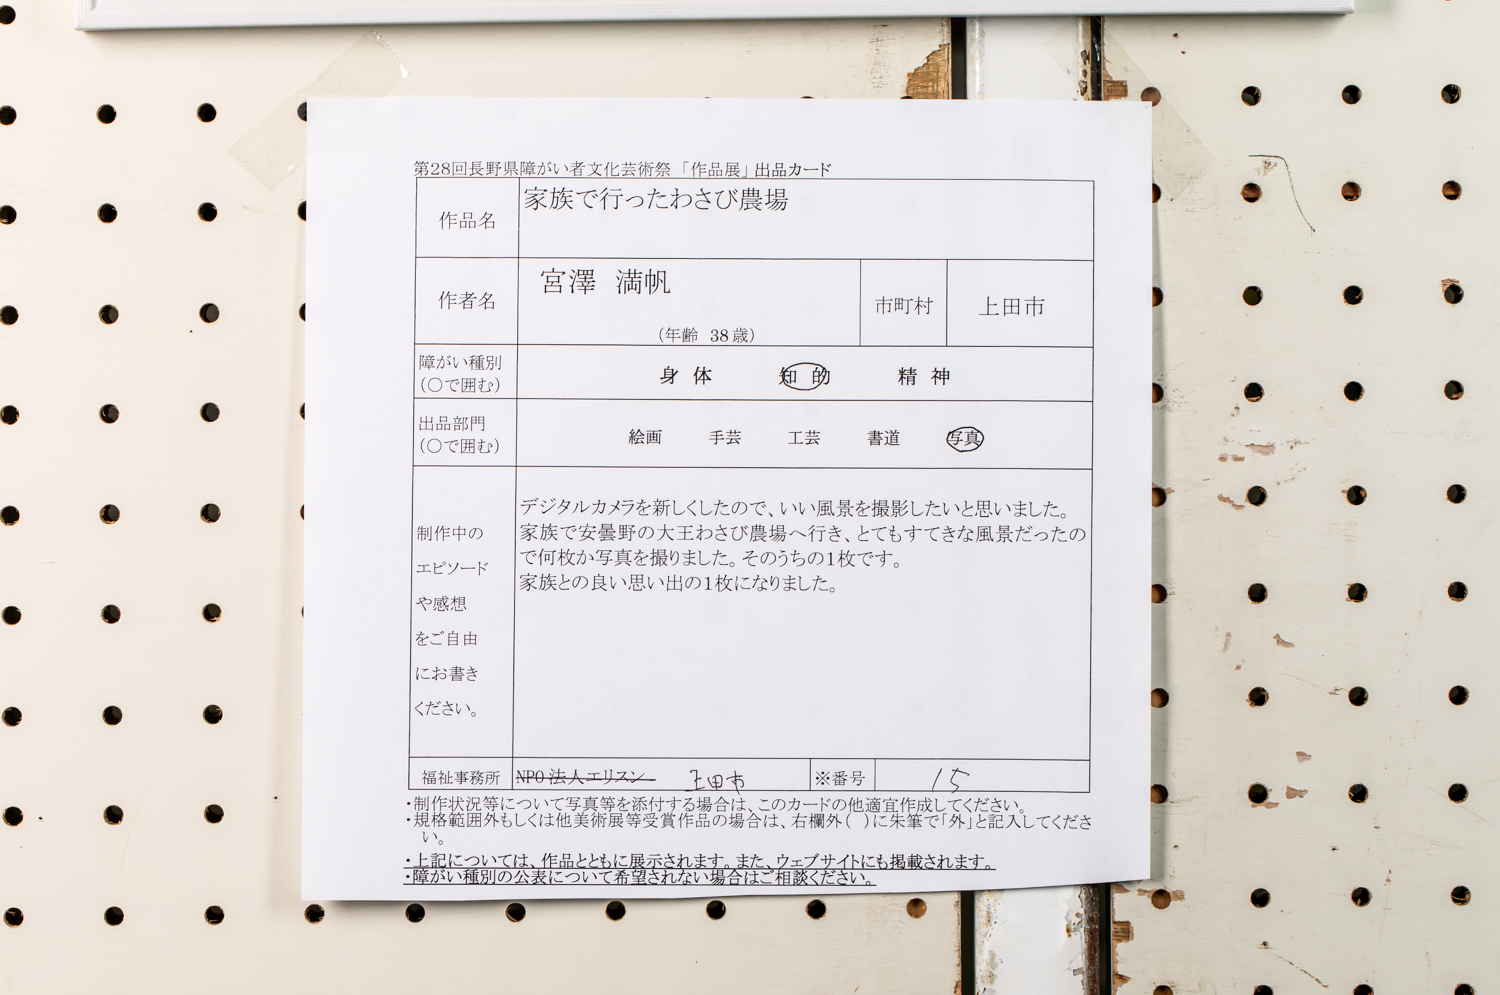 第28回長野県障がい者文化芸術祭 「作品展」出品カード
作品名 家族で行ったわさび農場
作者名 宮澤 満帆
(年齢 38歳)
市町村 上田市
障がい種別
(○で囲む)
身体 知的 精神
出品部門
(○で囲む)
絵画 手芸 工芸 書道 写真
制作中の
エピソード
や感想
をご自由
にお書き
ください。
デジタルカメラを新しくしたので、いい風景を撮影したいと思いました。
家族で安曇野の大王わさび農場へ行き、とてもすてきな風景だったの
で何枚か写真を撮りました。そのうちの1枚です。
家族との良い思い出の1枚になりました。
福祉事務所 NPO法人エリスン 上田市 ※番号 15
・制作状況等について写真等を添付する場合は、このカードの他適宜作成してください。
・規格範囲外もしくは他美術展等受賞作品の場合は、右欄外( )に朱筆で「外」と記入してくださ
い。
・上記については、作品とともに展示されます。また、ウェブサイトにも掲載されます。
・障がい種別の公表について希望されない場合はご相談ください。